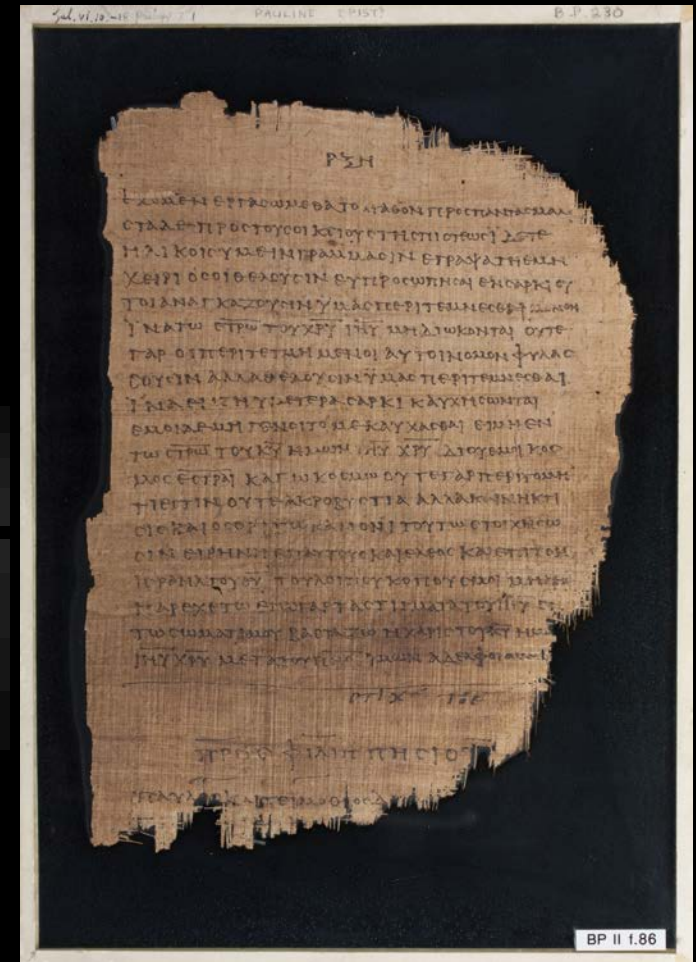 Gal. vi. 10 - 18 Philipp. I 1
PAULINE EPIST
B.P. 230
ΡΞΗ
ΕΧΟΜΕΝ ΕΡΓΑϹΩΜΕΘΑ ΤΟ ΑΓΑΘΟΝ ΠΡΟϹ ΠΑΝΤΑϹ ΜΑΛΙ
ϹΤΑ ΔΕ ΠΡΟϹ ΤΟΥϹ ΟΙΚΕΙΟΥϹ ΤΗϹ ΠΙϹΤΕΩϹ ΪΔΕΤΕ
ΗΛΙΚΟΙϹ ΥΜΕΙΝ ΓΡΑΜΜΑϹΙΝ ΕΓΡΑΨΑ ΤΗ ΕΜΗ
ΧΕΙΡΙ ΟϹΟΙ ΘΕΛΟΥϹΙΝ ΕΥΠΡΟϹΩΠΗϹΑΙ ΕΝ ϹΑΡΚΙ ΟΥ
ΤΟΙ ΑΝΑΓΚΑΖΟΥϹΙΝ ΫΜΑϹ ΠΕΡΙΤΕΜΝΕϹΘΑΙ ΜΟΝΟΝ
ΪΝΑ ΤΩ ϹΤΡΩ ΤΟΥ ΧΡΥ ΙΗΥ ΜΗ ΔΙΩΚΟΝΤΑΙ ΟΥΤΕ
ΓΑΡ ΟΙ ΠΕΡΙΤΕΤΜΗΜΕΝΟΙ ΑΥΤΟΙ ΝΟΜΟΝ ΦΥΛΑϹ
ϹΟΥϹΙΝ ΑΛΛΑ ΘΕΛΟΥϹΙΝ ΫΜΑϹ ΠΕΡΙΤΕΜΝΕϹΘΑΙ
ΪΝΑ ΕΝ ΤΗ ΫΜΕΤΕΡΑ ϹΑΡΚΙ ΚΑΥΧΗϹΩΝΤΑΙ
ΕΜΟΙ ΔΕ ΜΗ ΓΕΝΟΙΤΟ ΜΕ ΚΑΥΧΑϹΘΑΙ ΕΙ ΜΗ ΕΝ
ΤΩ ϹΤΡΩ ΤΟΥ ΚΥ ΗΜΩΝ ΙΗΥ ΧΡΥ ΔΙ ΟΥ ΕΜΟΙ ΚΟϹ
ΜΟϹ ΕϹΤΡΑΙ ΚΑΓΩ ΚΟϹΜΩ ΟΥΤΕ ΓΑΡ ΠΕΡΙΤΟΜΗ
ΤΙ ΕϹΤΙΝ ΟΥΤΕ ΑΚΡΟΒΥϹΤΙΑ ΑΛΛΑ ΚΑΙΝΗ ΚΤΙ
ϹΙϹ ΚΑΙ ΟϹΟΙ ΤΩ ΚΑΝΟΝΙ ΤΟΥΤΩ ϹΤΟΙΧΗϹΩ
ϹΙΝ ΕΙΡΗΝΗ ΕΠ ΑΥΤΟΥϹ ΚΑΙ ΕΛΕΟϹ ΚΑΙ ΕΠΙ ΤΟΝ
ΙϹΡΑΗΛ ΤΟΥ ΘΥ ΤΟΥ ΛΟΙΠΟΥ ΚΟΠΟΥϹ ΜΟΙ ΜΗΔΕΙϹ
ΠΑΡΕΧΕΤΩ ΕΓΩ ΓΑΡ ΤΑ ϹΤΙΓΜΑΤΑ ΤΟΥ ΙΗΥ ΕΝ
ΤΩ ϹΩΜΑΤΙ ΜΟΥ ΒΑϹΤΑΖΩ Η ΧΑΡΙϹ ΤΟΥ ΚΥ ΗΜΩ
ΙΗΥ ΧΡΥ ΜΕΤΑ ΤΟΥ ΠΝΣ ΫΜΩΝ ΑΔΕΛΦΟΙ ΑΜΗΝ
ϹΤΙΧ ΤΟΕ
ΠΡΟϹ ΦΙΛΙΠΠΗϹΙΟΥϹ
ΠΑΥΛΟϹ ΚΑΙ ΤΕΙΜΟΘΕΟϹ Δ
BP II f.86